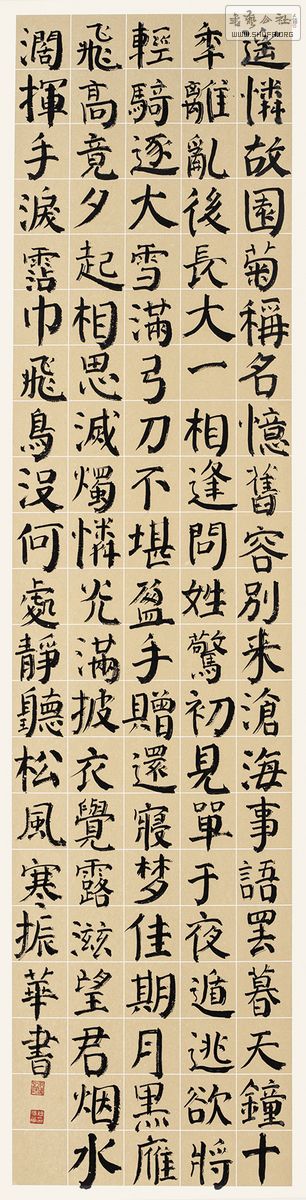 遥憐故園菊稱名憶舊容別来滄海事語罷暮天鐘十
秊離亂後長大一相逢問姓驚初見單于夜遁逃欲將
輕騎逐大雪滿弓刀不堪盈手贈還寢梦佳期月黑雁
飛高竟夕起相思滅燭憐光滿披衣覺露滋望君烟水
濶揮手淚霑巾飛鳥没何處靜聽松風寒振華書
WWW.SHUFA.ORG